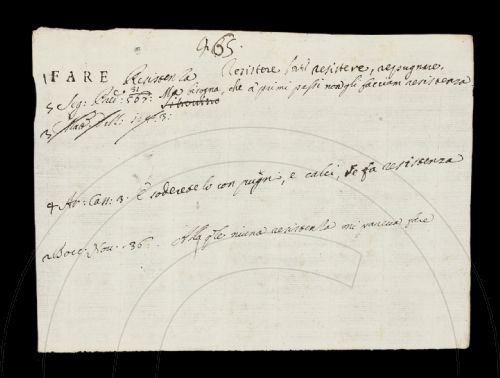 965.
1 FARE Resistenza Resistere, resistere, repugnare.
5 Seg: Pred: 31 507: Ma bisogna, che a' primi passi non gli facciam resistenza
3
4 Ar: Cass: 3. E soderetelo con pugn, e calci, se fa resistenza
2 Bocc: Nov: 36. Alla q̃le niuna resistenza mi pareva